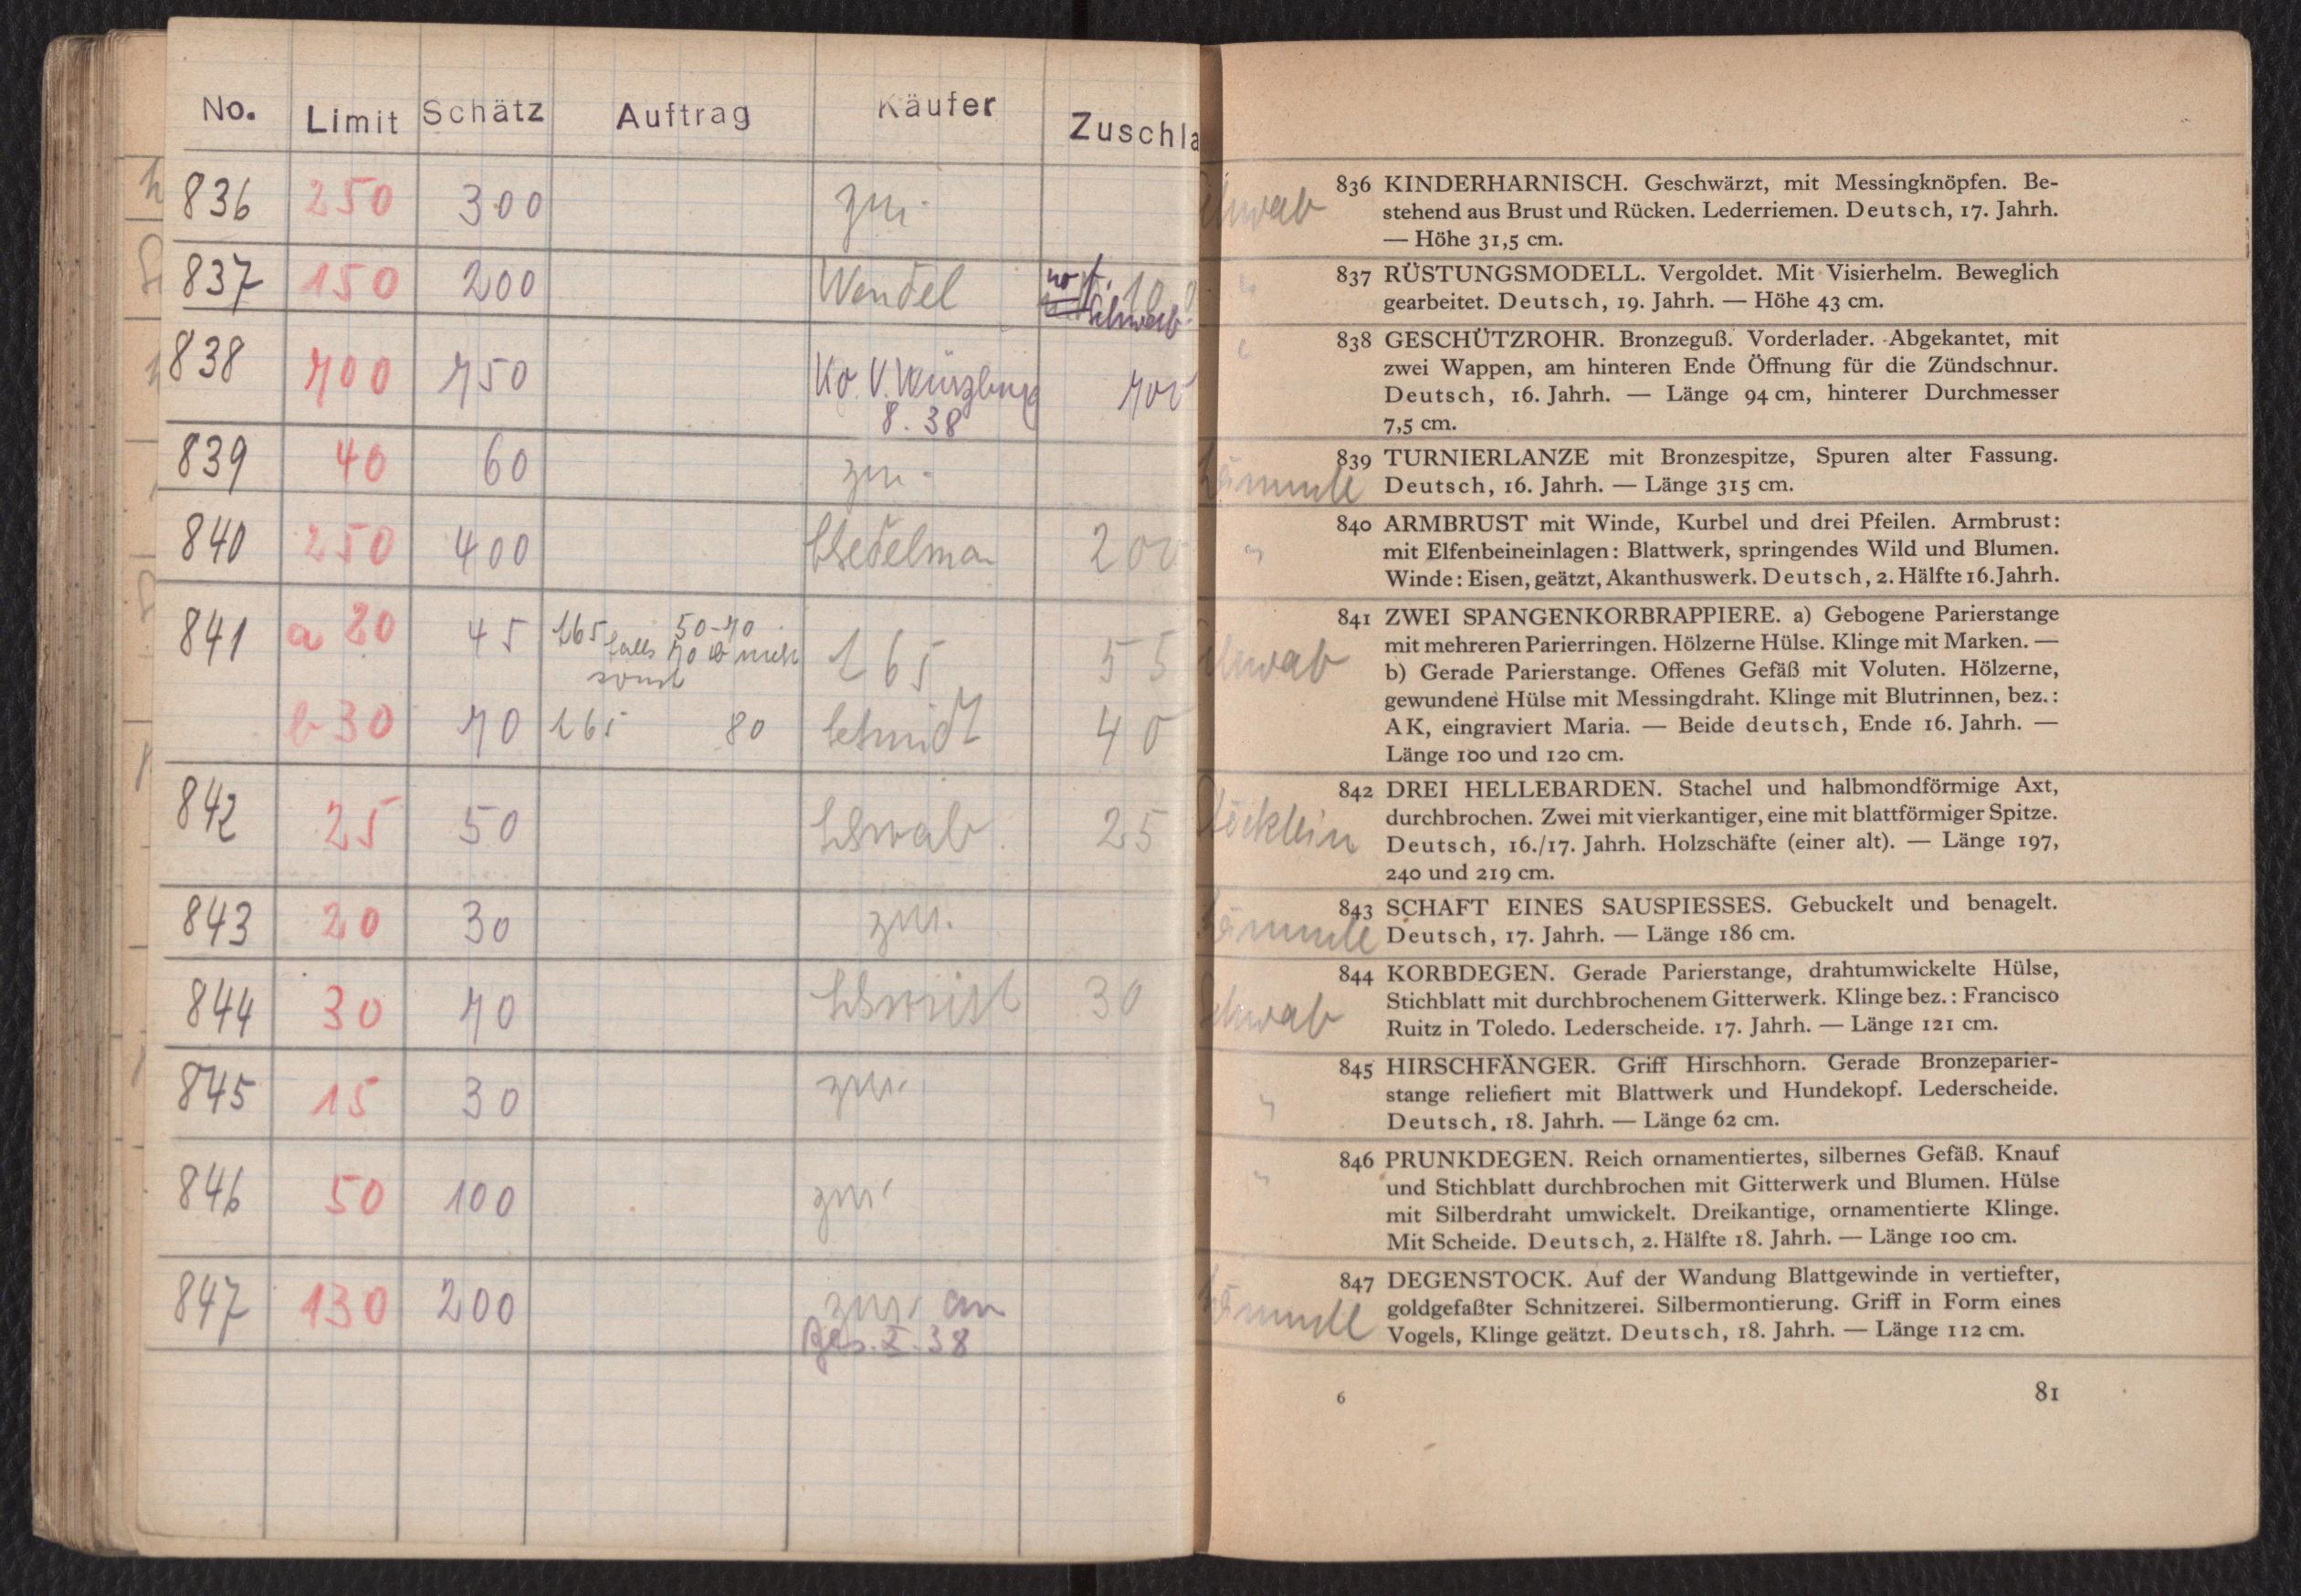 No. Limit Schätz Auftrag Käufer Zuschla
836 250 300 zur.
837 150 200 Wendel 100
Schwab
838 700 750 Ko. V. Würzburg 700
8. 38
839 40 60 zur.
840 250 400 200
841 a 20 45 165 50-70 165 55
falls 70 nicht
sonst
b 30 70 165 80 Schmidt 40
842 25 50 Schwab 25
843 20 30 zur.
844 30 70 30
845 15 30 zur.
846 50 100 zur.
847 130 200 zur. an
Ges. X. 38
chwab
836 KINDERHARNISCH. Geschwärzt, mit Messingknöpfen. Be-
stehend aus Brust und Rücken. Lederriemen. Deutsch, 17. Jahrh.
— Höhe 31,5 cm.
837 RÜSTUNGSMODELL. Vergoldet. Mit Visierhelm. Beweglich
gearbeitet. Deutsch, 19. Jahrh. — Höhe 43 cm.
838 GESCHÜTZROHR. Bronzeguß. Vorderlader. Abgekantet, mit
zwei Wappen, am hinteren Ende Öffnung für die Zündschnur.
Deutsch, 16. Jahrh. — Länge 94 cm, hinterer Durchmesser
7,5 cm.
839 TURNIERLANZE mit Bronzespitze, Spuren alter Fassung.
Deutsch, 16. Jahrh. — Länge 315 cm.
840 ARMBRUST mit Winde, Kurbel und drei Pfeilen. Armbrust:
mit Elfenbeineinlagen: Blattwerk, springendes Wild und Blumen.
Winde: Eisen, geätzt, Akanthuswerk. Deutsch, 2. Hälfte 16. Jahrh.
841 ZWEI SPANGENKORBRAPPIERE. a) Gebogene Parierstange
mit mehreren Parierringen. Hölzerne Hülse. Klinge mit Marken. —
chwab
b) Gerade Parierstange. Offenes Gefäß mit Voluten. Hölzerne,
gewundene Hülse mit Messingdraht. Klinge mit Blutrinnen, bez.:
AK, eingraviert Maria. — Beide deutsch, Ende 16. Jahrh. —
Länge 100 und 120 cm.
842 DREI HELLEBARDEN. Stachel und halbmondförmige Axt,
durchbrochen. Zwei mit vierkantiger, eine mit blattförmiger Spitze.
öcklein
Deutsch, 16./17. Jahrh. Holzschäfte (einer alt). — Länge 197,
240 und 219 cm.
843 SCHAFT EINES SAUSPIESSES. Gebuckelt und benagelt.
Deutsch, 17. Jahrh. — Länge 186 cm.
844 KORBDEGEN. Gerade Parierstange, drahtumwickelte Hülse,
Stichblatt mit durchbrochenem Gitterwerk. Klinge bez.: Francisco
chwab
Ruitz in Toledo. Lederscheide. 17. Jahrh. — Länge 121 cm.
845 HIRSCHFÄNGER. Griff Hirschhorn. Gerade Bronzeparier-
stange reliefiert mit Blattwerk und Hundekopf. Lederscheide.
Deutsch, 18. Jahrh. — Länge 62 cm.
846 PRUNKDEGEN. Reich ornamentiertes, silbernes Gefäß. Knauf
und Stichblatt durchbrochen mit Gitterwerk und Blumen. Hülse
mit Silberdraht umwickelt. Dreikantige, ornamentierte Klinge.
Mit Scheide. Deutsch, 2. Hälfte 18. Jahrh. — Länge 100 cm.
847 DEGENSTOCK. Auf der Wandung Blattgewinde in vertiefter,
goldgefaßter Schnitzerei. Silbermontierung. Griff in Form eines
Vogels, Klinge geätzt. Deutsch, 18. Jahrh. — Länge 112 cm.
6 81